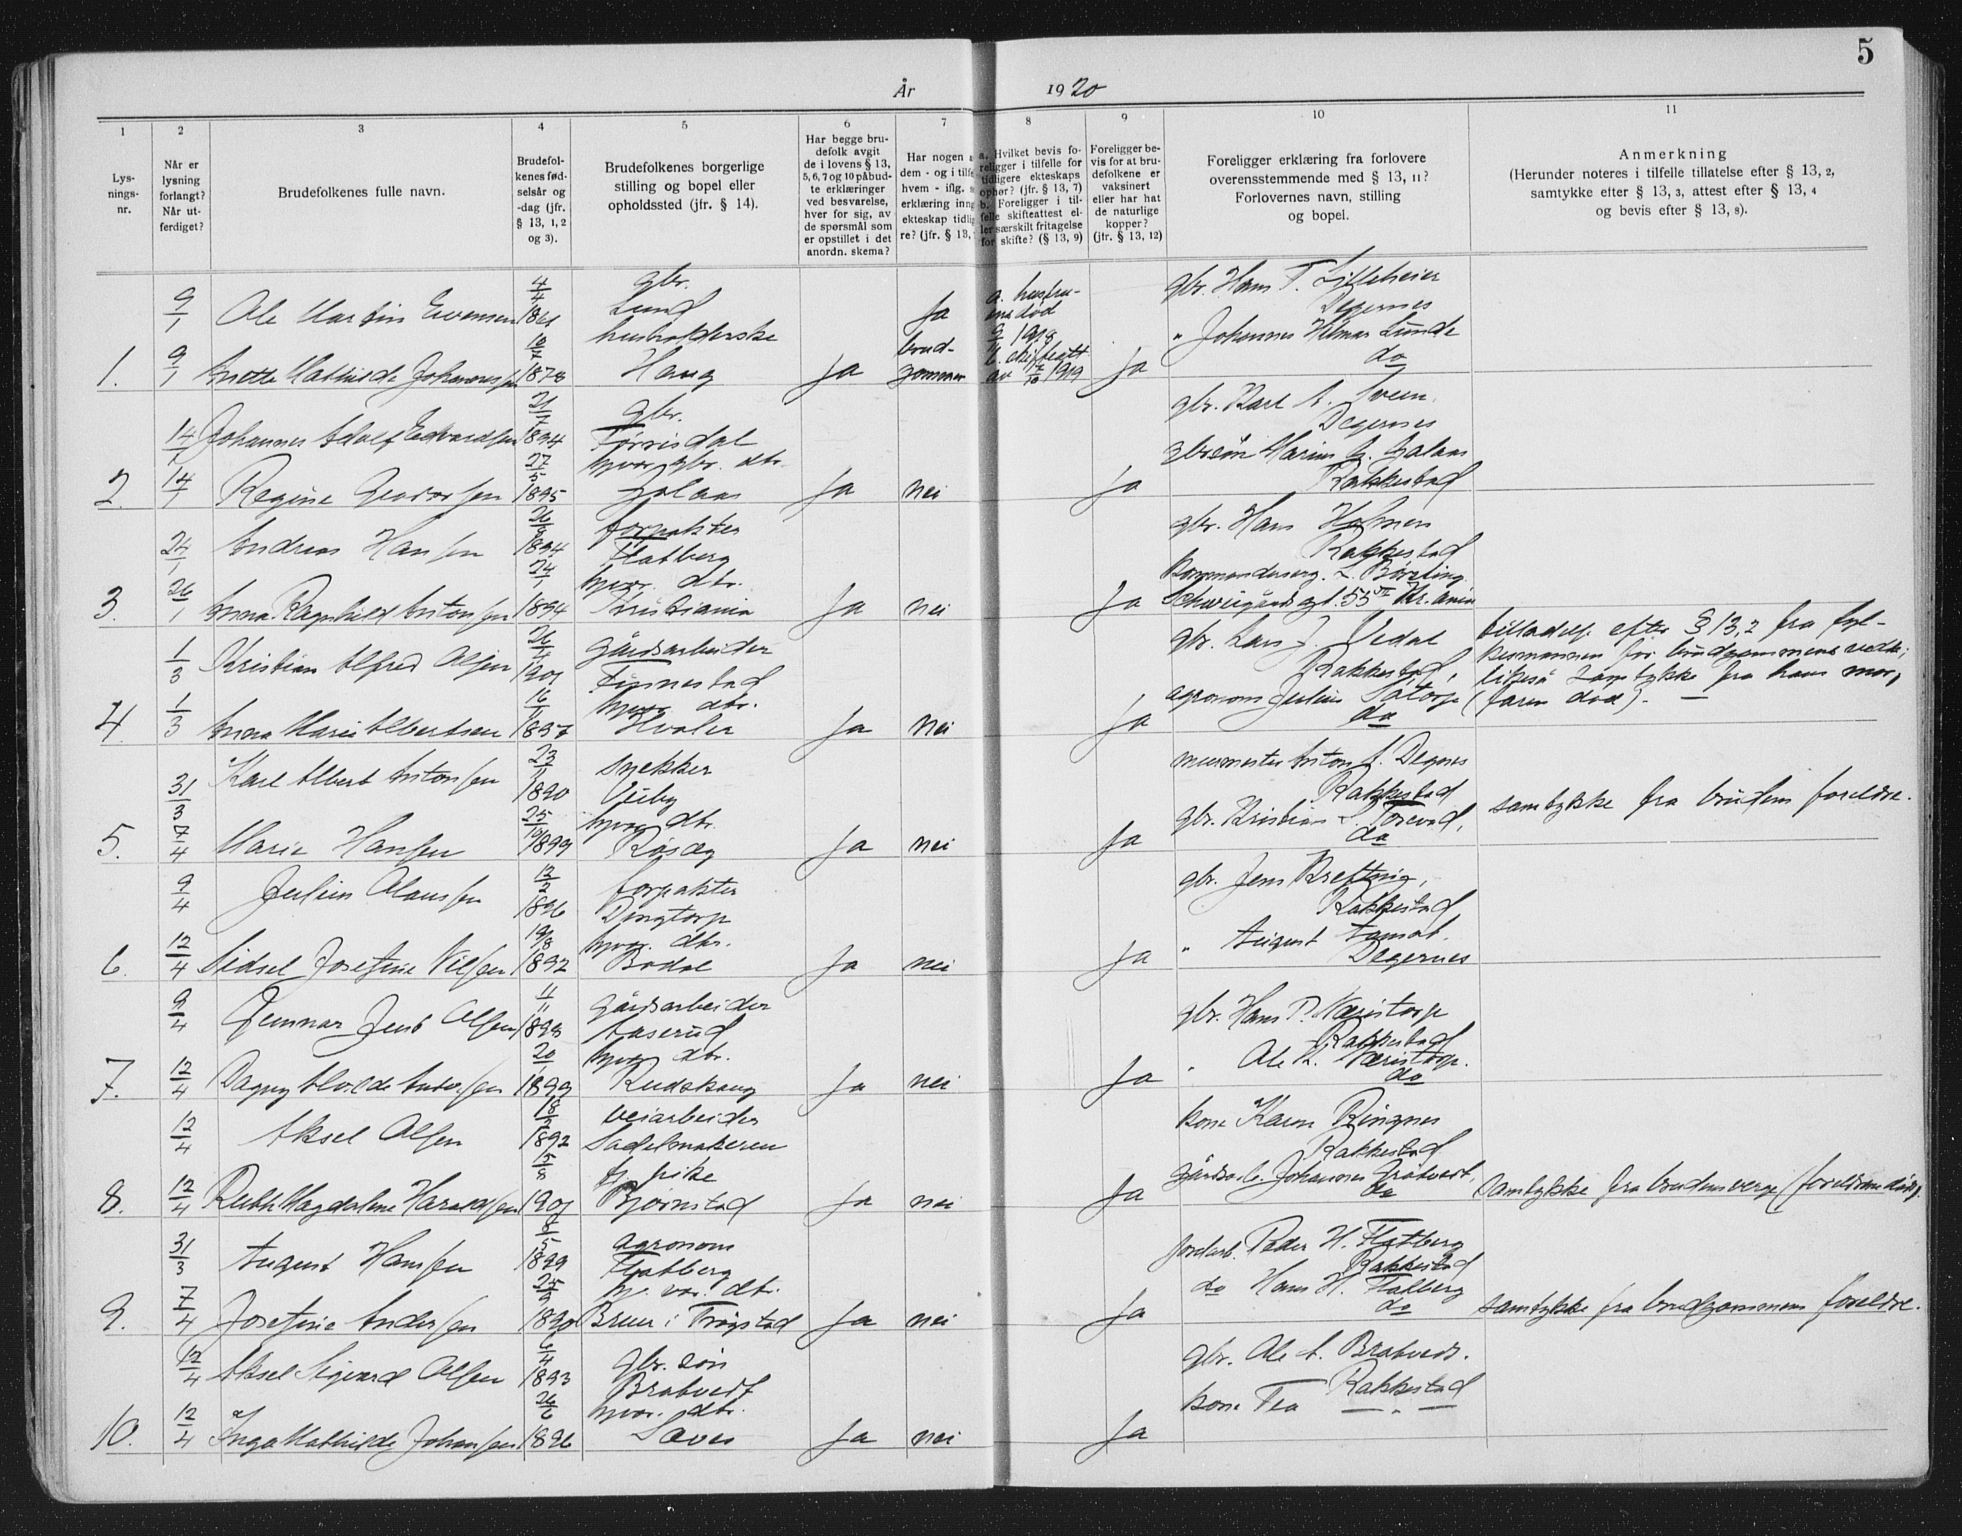 5
År 1920
1 2 3 4 5 6 7 8 9 10 11
Lysningsnr.
Når er lysning forlangt? Når utferdiget?
Brudefolkenes fulle navn.
Brudefolkenes fødselsår og -dag (jfr. § 13, 1, 2 og 3).
Brudefolkenes borgerlige stilling og bopel eller opholdssted (jfr. § 14).
Har begge brudefolk avgit de i lovens § 13, 5, 6, 7 og 10 påbudte erklæringer ved besvarelse, hver for sig, av de spørsmål som er opstillet i det anordn. skema?
Har nogen a
dem - og i tilfe
hvem - iflg. s
erklæring inng
ekteskap tidlig
re? (jfr. § 13,
a. Hvilket bevis foreligger i tilfelle for tidligere ekteskaps ophør? (jfr. § 13, 7)
b. Foreligger i tilfelle skifteattest eller særskilt fritagelse for skifte? (§ 13, 9)
Foreligger bevis for at brudefolkene er vaksinert eller har hat de naturlige kopper? (jfr. § 13, 12)
Foreligger erklæring fra forlovere overensstemmende med § 13, 11? Forlovernes navn, stilling og bopel.
Anmerkning
(Herunder noteres i tilfelle tillatelse efter § 13, 2, samtykke efter § 13, 3, attest efter § 13, 4 og bevis efter § 13, 8).
9/1 Ole Martin Evensen 4/4 gbr. Lund
gbr. Hans T. Lilleheier
Degernes
1. 9/1 Mathilde 1878 husholderske Haug Ja Ja brudgommen
a. hustruens død 1918
b. skifteatt. av 1919
Ja
" Johannes Hilmar Lunde
do
14/1 Johannes Adolf Edvardsen 1894 gbr.
gbr. Karl A.
Degernes
2. 14/1 Regine 27/5 1895 hjvær. gbr. dtr. Ja nei Ja
gbrsøn Marius
Rakkestad
24/1 Andreas Hansen 1894 forpakter Flatberg
gbr. Hans Holmen
Rakkestad
3. 26/1 Anna Ragnhild Antonsen 24/1 1894 hjvær. dtr. Kristiania Ja nei Ja
55 Kr.ania
1/3 Kristian Alfred Olsen 1901 gårdsarbeider Finnestad
gbr. Lars J. Vedal
Rakkestad,
tilladelse efter § 13,2 fra fylkesmannen for brudgommens vedk.;
likeså samtykke fra hans mor,
(faren død). —
4. 1/3 Anna Marie Albertsen 1897 hjvær. dtr. Hvaler Ja nei Ja
agronom Julius
do
31/3 Karl Albert Antonsen 1890 snekker Veiby
murmester Anton A. Degnes
Rakkestad
samtykke fra brudens foreldre.
5. 7/4 Marie Hansen 25/10 1899 hjvær. dtr. Ja nei Ja
gbr. Kristian
do
9/4 Julius Olaussen 1896 forpakter
gbr. Jens
Rakkestad
6. 12/4 Sidsel Josefine Nilsen 19/8 1892 hjvær. dtr. Bodal Ja nei Ja
" August
Degernes
9/4 Gunnar Jens Olsen 1898 gårdsarbeider Aaserud
gbr. Hans P. Næristorp
Rakkestad
7. 12/4 Dagny 1899 hjvær. dtr. Rudskaug Ja nei Ja
" Ole H. Næristorp.
do
12/4 Aksel Olsen 1892 veiarbeider Sadelmakeren
kone Karen Ringnes
Rakkestad
8. 12/4 Ruth Magdalene Haraldsen 1901 tj. pike Bjørnstad Ja nei Ja
gårdsarb. Johannes
do
Samtykke fra brudens verge (foreldrene døde).
31/3 August Hansen 8/5 1899 agronom Flatberg
Peder H. Flatberg
Rakkestad
9. 7/4 Josefine Andersen 25/9 1890 hj. vær. dtr. i Trøgstad Ja nei Ja
do Hans H. Flatberg
do
samtykke fra brudgommens foreldre.
12/4 Aksel Sigvard Olsen 6/4 1893 gbr. søn Bratvedt
gbr. Ole A. Bratvedt.
Rakkestad
10. 12/4 Inga Mathilde Johansen 26/6 1896 hjvær. dtr. Ja nei Ja
kone Tea — " —